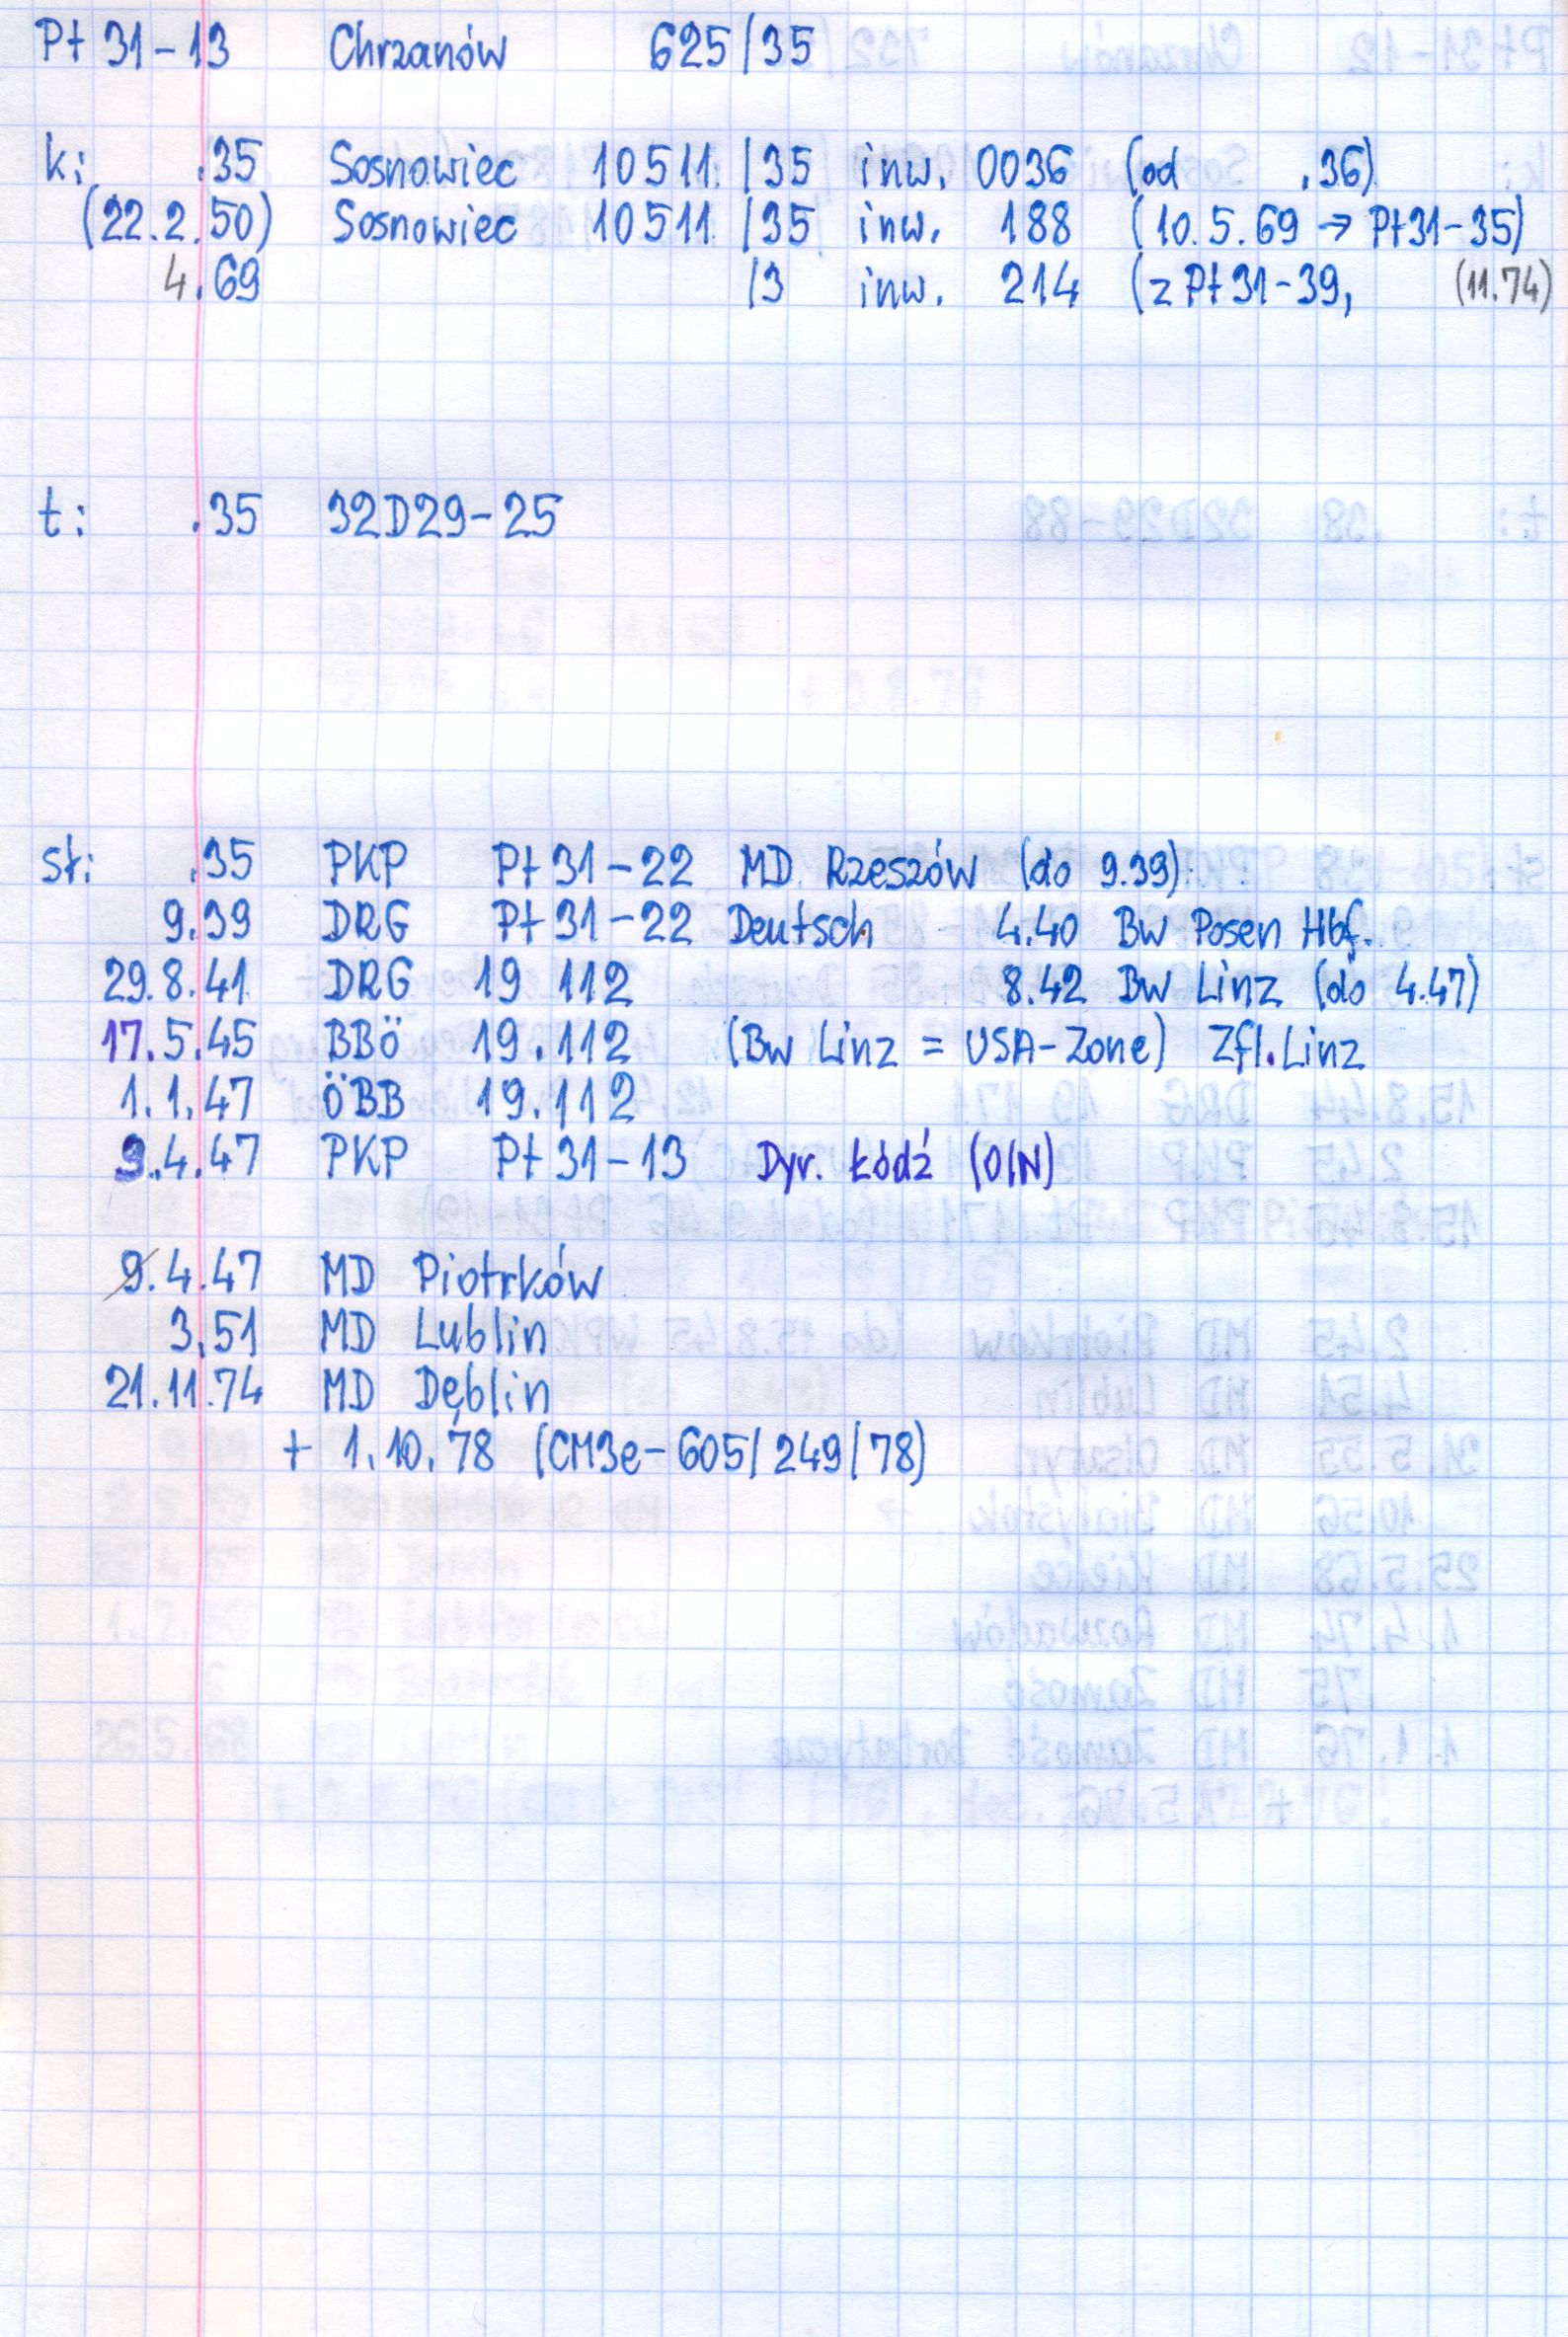 Pt 31-13 Chrzanów 625/35
k: .35 Sosnowiec 10511 /35 inw. 0036 (od .36)
(22.2.50) Sosnowiec 10511 /35 inw. 188 (10.5.69 → Pt31-35)
4.69 /3 inw. 214 (z Pt31-39, (11.74)
t: .35 32D29-25
st: .35 PKP Pt 31-22 MD Rzeszów (do 9.39)
9.39 DRG Pt 31-22 Deutsch 4.40 Bw Posen Hbf.
29.8.41 DRG 19 112 8.42 Bw Linz (do 4.47)
17.5.45 BBö 19.112 (Bw Linz = USA-Zone) Zfl.Linz
1.1.47 ÖBB 19.112
9.4.47 PKP Pt 31-13 Dyr. Łódź (OIN)
9.4.47 MD Piotrków
3.51 MD Lublin
21.11.74 MD Dęblin
+ 1.10.78 (CM3e-605/249/78)